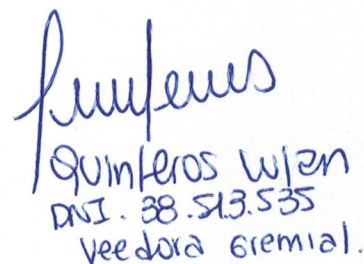 Quinteros
DNI. 38.513.535
Veedora Gremial.